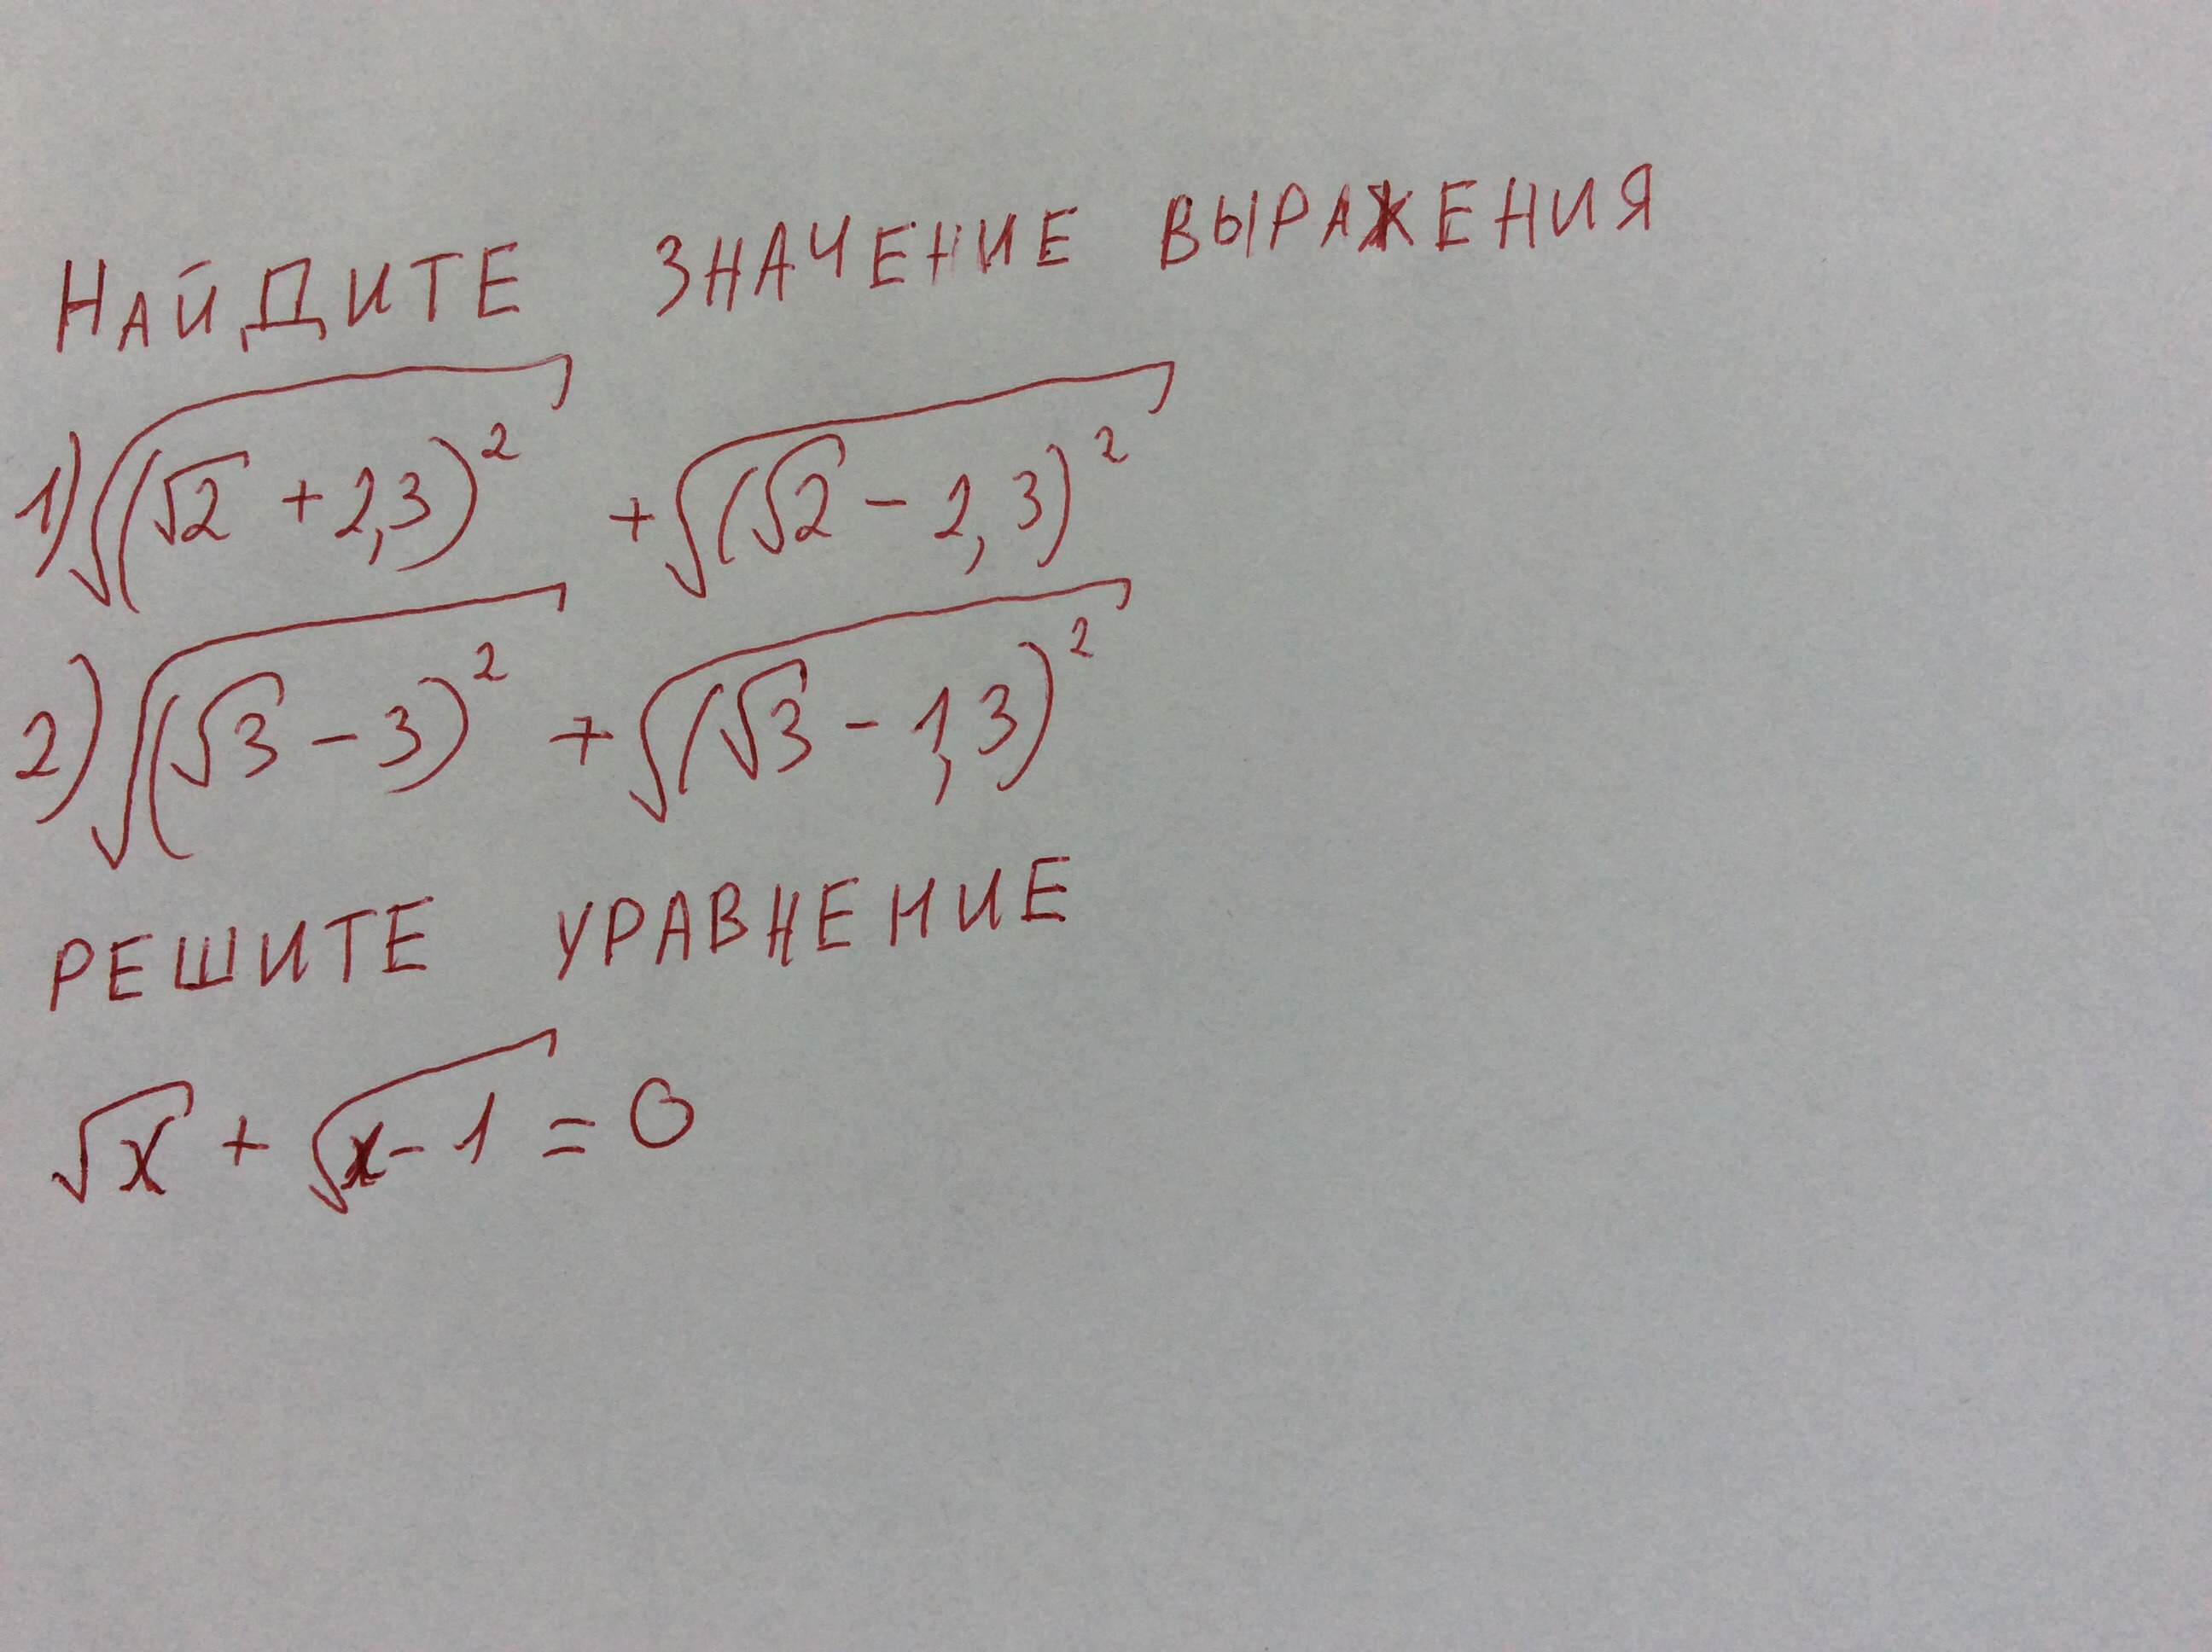 НАЙДИТЕ ЗНАЧЕНИЕ ВЫРАЖЕНИЯ
1) √((√2 + 2,3)²) + √((√2 - 2,3)²)
2) √((√3 - 3)²) + √((√3 - 1,3)²)
РЕШИТЕ УРАВНЕНИЕ
√x + √(x-1) = 0